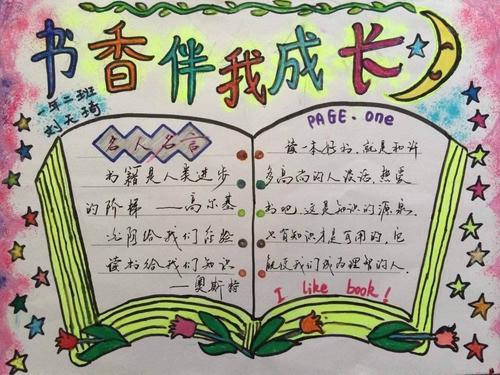 书香伴我成长
一年二班
刘天琦
名人名言
书籍是人类进步
的阶梯——高尔基
光阴给我们经验
读书给我们知识
——奥斯特
PAGE. one
读一本好书,就是和许
多高尚的人谈话,热爱
书吧,这是知识的源泉.
只有知识才是可用的,它
能使我们成为理智的人.
I like book!